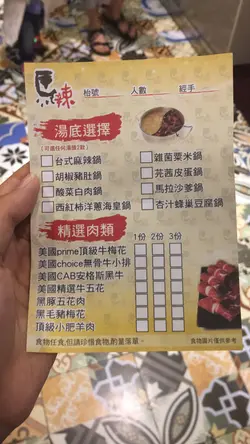 辣 枱號 人數 經手
湯底選擇
(可選任何湯底2款)
台式麻辣鍋
胡椒豬肚鍋
酸菜白肉鍋
西紅柿洋蔥海皇鍋
雜菌粟米鍋
芫茜皮蛋鍋
馬拉沙爹鍋
杏汁蜂巢豆腐鍋
精選肉類
1份 2份 3份
美國prime頂級牛梅花
美國choice無骨牛小排
美國CAB安格斯黑牛
美國精選牛五花
黑豚五花肉
黑毛豬梅花
頂級小肥羊肉
食物任食,但請珍惜食物,酌量落單。
食物圖片僅供參考